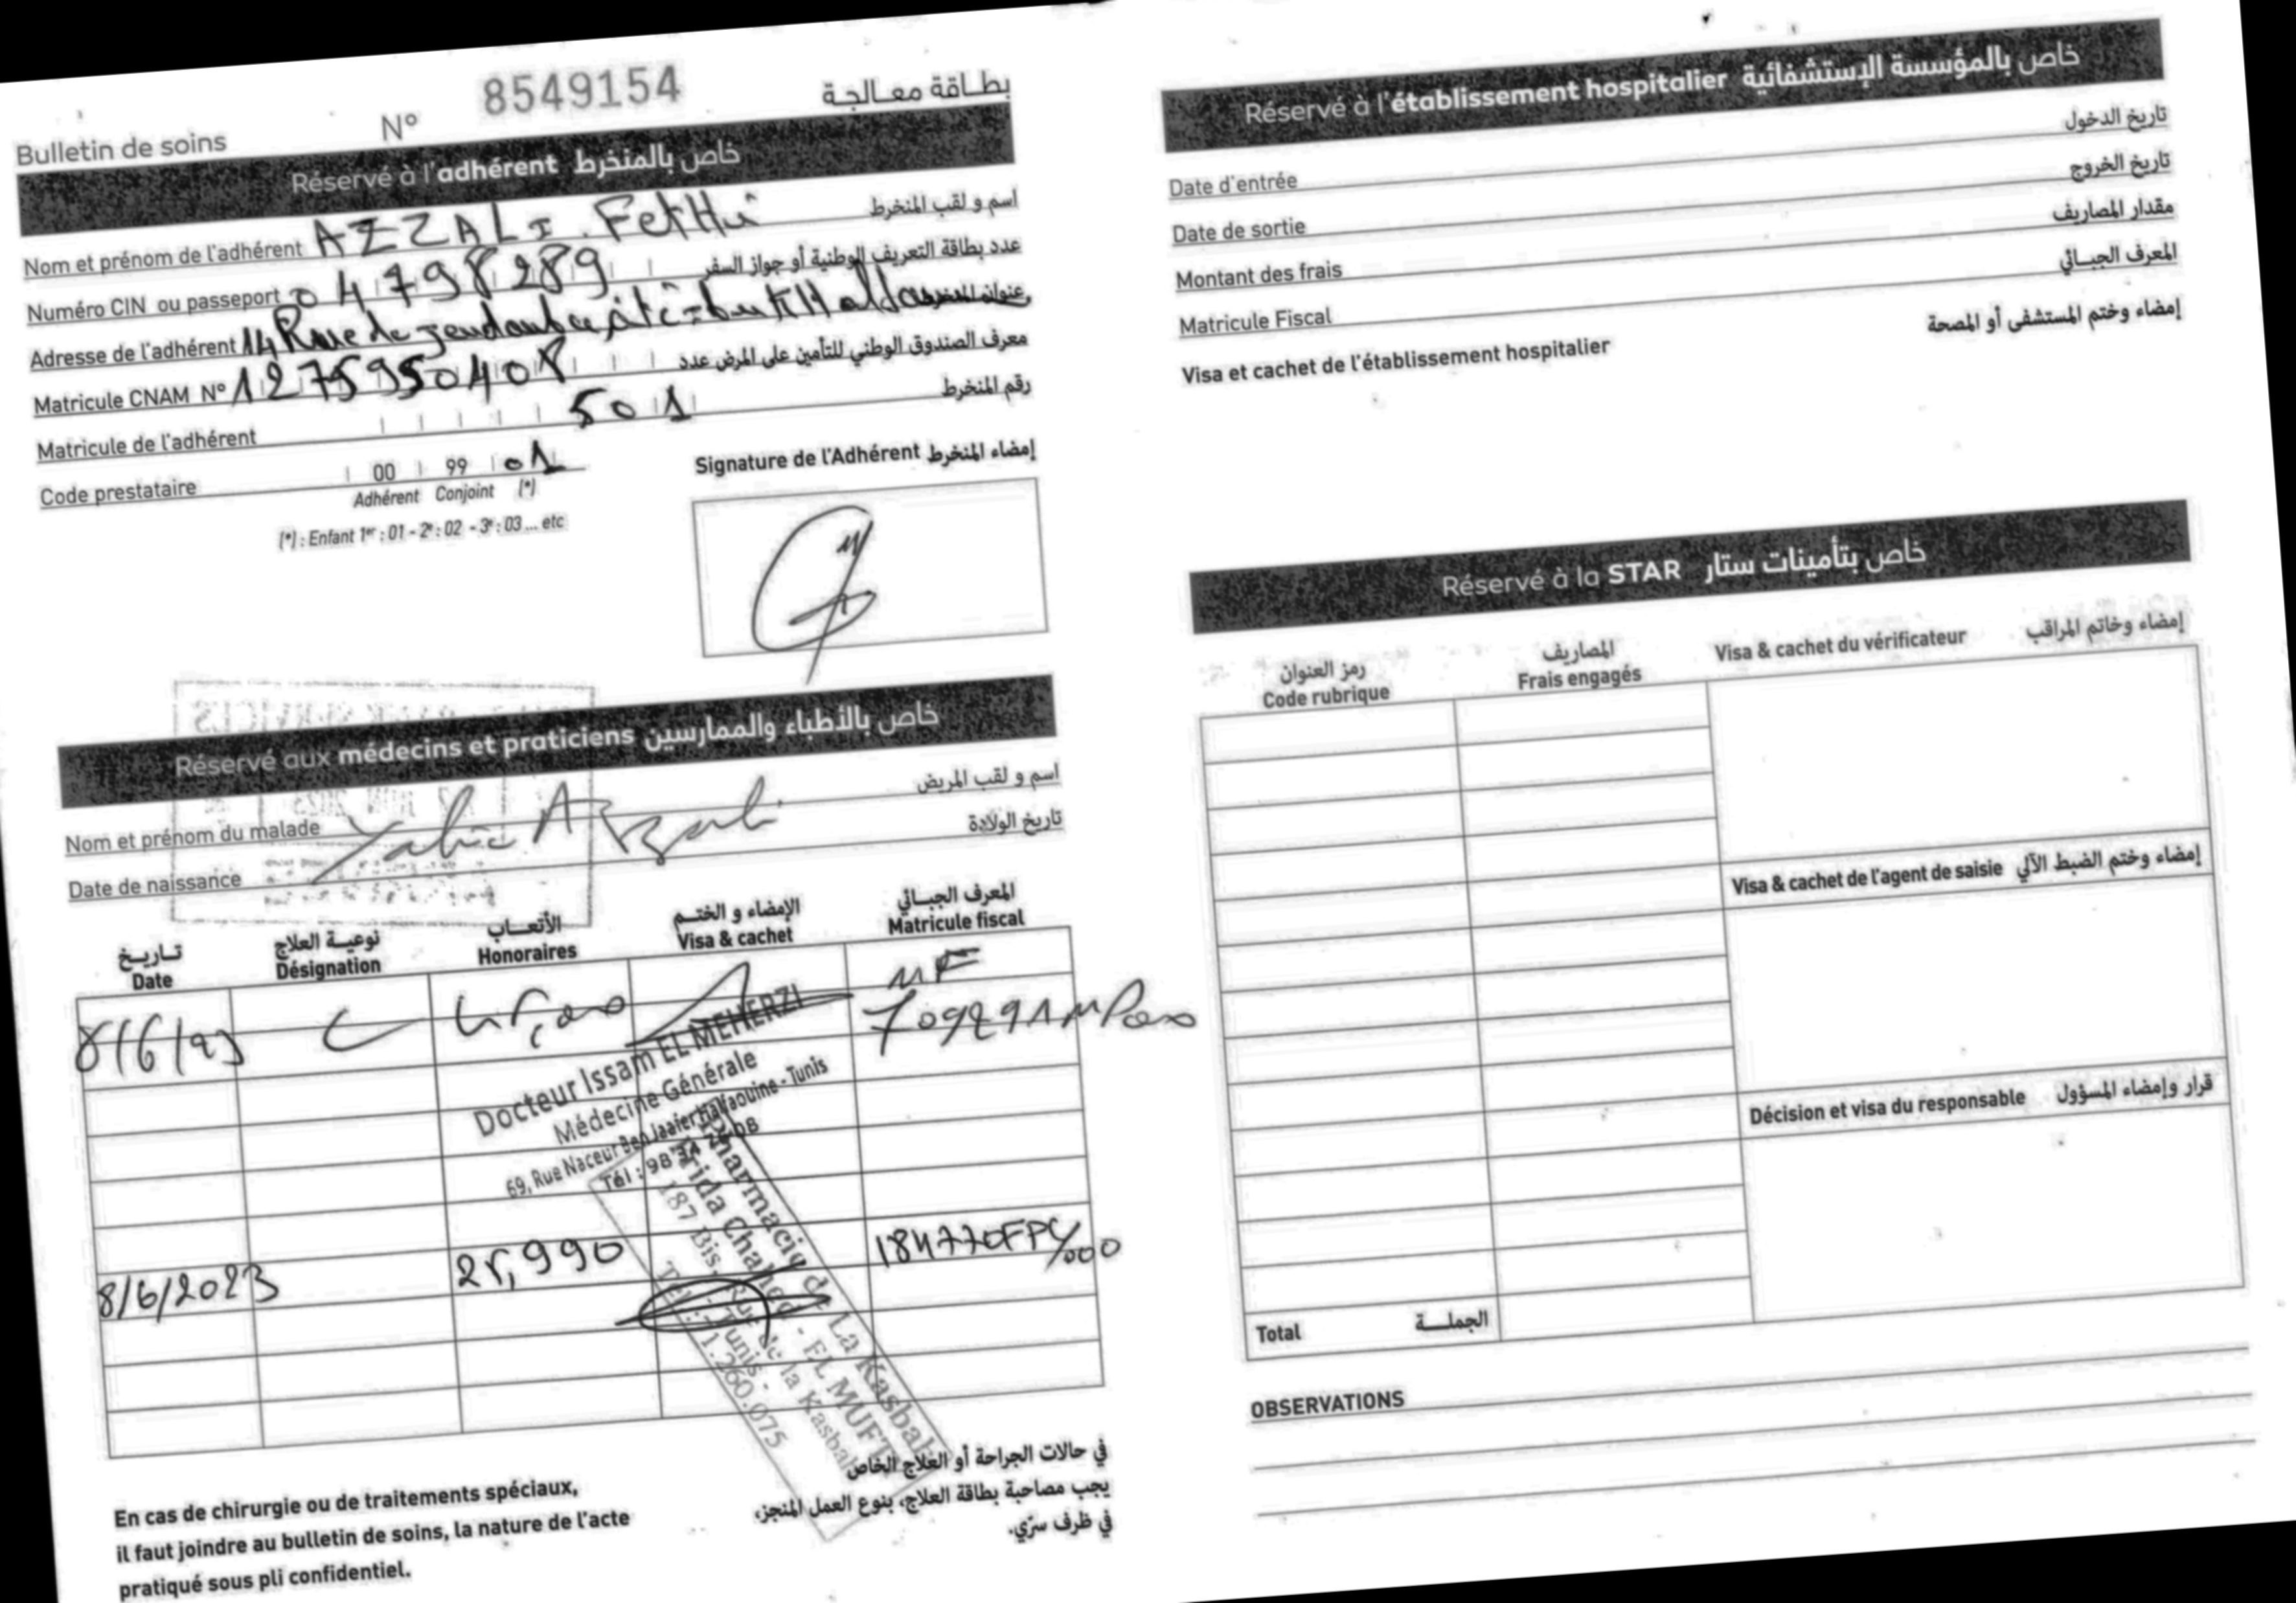 Bulletin de soins N° 8549154 بطاقة معالجة
Réservé à l'adhérent خاص بالمنخرط
Nom et prénom de l'adhérent AZZALI Fethi اسم و لقب المنخرط
Numéro CIN ou passeport 04798289 عدد بطاقة التعريف الوطنية أو جواز السفر
Adresse de l'adhérent 14 Rue de jendouba cité عنوان المنخرط
Matricule CNAM N° 1275950408 معرف الصندوق الوطني للتأمين على المرض عدد
Matricule de l'adhérent 501 رقم المنخرط
Code prestataire 00 99 01
Adhérent Conjoint (*)
(*) : Enfant 1er : 01 - 2e : 02 - 3e : 03 ... etc
Signature de l'Adhérent إمضاء المنخرط
Réservé aux médecins et praticiens خاص بالأطباء والممارسين
Nom et prénom du malade Yahia Azzali اسم و لقب المريض
Date de naissance تاريخ الولادة
تاريخ نوعية العلاج الأتعاب الإمضاء و الختم المعرف الجبائي
Date Désignation Honoraires Visa & cachet Matricule fiscal
8/6/23 C MF
Docteur Issam EL MEHERZI
Médecine Générale
69, Rue Naceur Ben Jaafer Halfaouine - Tunis
Tél : 98
8/6/2023 25,990 184770FPC/000
Pharmacie de La Kasbah
Frida Chahed - EL MUFTI
187 Bis, Rue de la Kasbah
- Tunis -
Tél : 71.260.075
En cas de chirurgie ou de traitements spéciaux,
il faut joindre au bulletin de soins, la nature de l'acte
pratiqué sous pli confidentiel.
في حالات الجراحة أو العلاج الخاص
يجب مصاحبة بطاقة العلاج، بنوع العمل المنجز،
في ظرف سرّي.
Réservé à l'établissement hospitalier خاص بالمؤسسة الإستشفائية
Date d'entrée تاريخ الدخول
Date de sortie تاريخ الخروج
Montant des frais مقدار المصاريف
Matricule Fiscal المعرف الجبائي
Visa et cachet de l'établissement hospitalier إمضاء وختم المستشفى أو المصحة
Réservé à la STAR خاص بتأمينات ستار
رمز العنوان المصاريف
Code rubrique Frais engagés Visa & cachet du vérificateur إمضاء وخاتم المراقب
Visa & cachet de l'agent de saisie إمضاء وختم الضبط الآلي
Décision et visa du responsable قرار وإمضاء المسؤول
Total الجملة
OBSERVATIONS